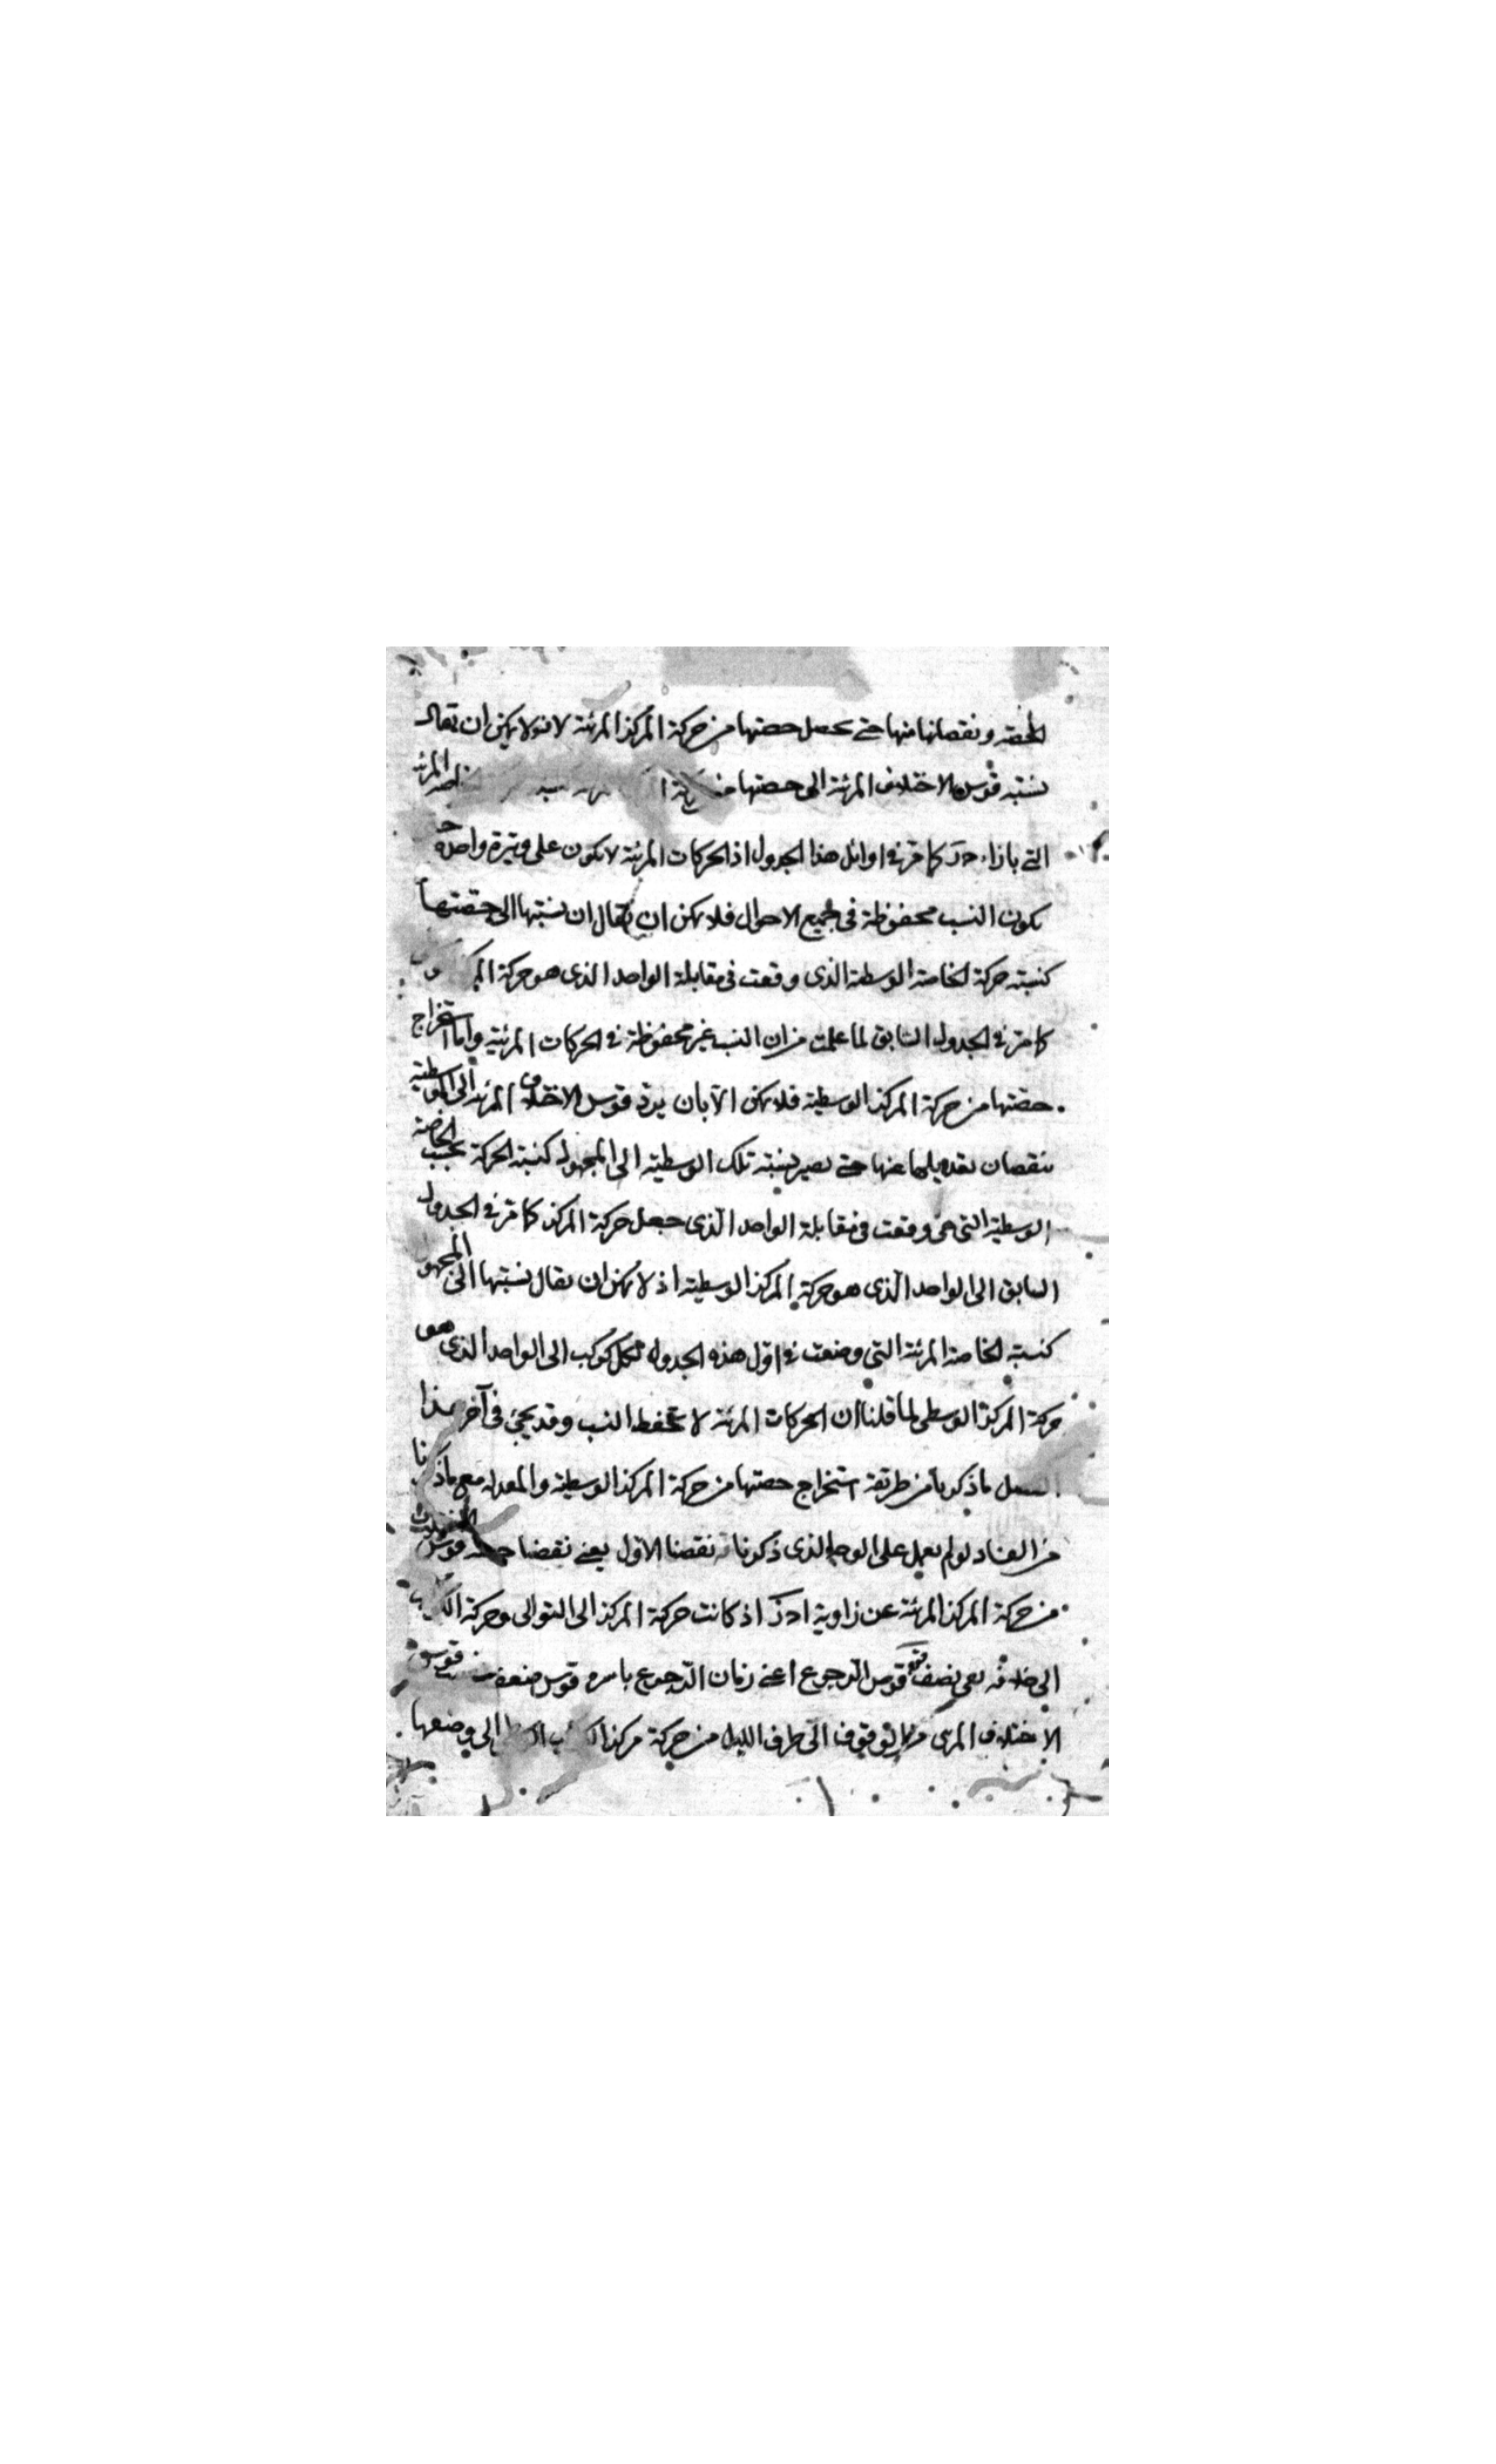 الحصة ونقصانها منها حتى يحصل حصتها من حركة المركز المرئية لانه لا يمكن ان يقال
نسبة قوس الاختلاف المرئية الى حصتها من المرئية
التى بازاء كما مر فى اوائل هذا الجدول اذ الحركات المرئية لا يكون على وتيرة واحدة
يكون النسب محفوظة فى جميع الاحوال فلا يمكن ان يقال ان نسبتها الى حصتها
كنسبة حركة الخاصة الوسطية الذى وقعت فى مقابلة الواحد الذى هو حركة
كما مر فى الجدول السابق لما علمت من ان النسب غير محفوظة فى الحركات المرئية واما استخراج
حصتها من حركة المركز الوسطية فلا يمكن الا بان يرد قوس الاختلاف المرئية الى الوسطية
بنقصان تعديلها عنها حتى يصير نسبة تلك الوسطية الى المجهول كنسبة الحركة بحسب الخاصة
الوسطية التى هى وقعت فى مقابلة الواحد الذى جعل حركة المركز كما مر فى الجدول
السابق الى الواحد الذى هو حركة المركز الوسطية اذ لا يمكن ان يقال نسبتها الى المجهول
كنسبة الخاصة المرئية التى وضعت فى اول هذه الجدول لكل كوكب الى الواحد الذى هو
حركة المركز الوسطى لما قلنا ان الحركات المرئية لا تحفظ النسب وقد يجئ فى آخر هذا
الفصل ما ذكرنا من طريقة استخراج حصتها من حركة المركز الوسطية والمعدلة مع ما ذكرنا
من الفساد لو لم يعمل على الوجه الذى ذكرنا نقصنا الاول يعنى نقصنا حصة قوس الاختلاف
من حركة المركز المرئية عن زاوية اذ كانت حركة المركز الى التوالى وحركة
الى خلافه بقى نصف قوس الرجوع اعنى زمان الرجوع باسره قوس ضعف قوس
الاختلاف المرئى الى طرف الليل من حركة مركز الى وضعها